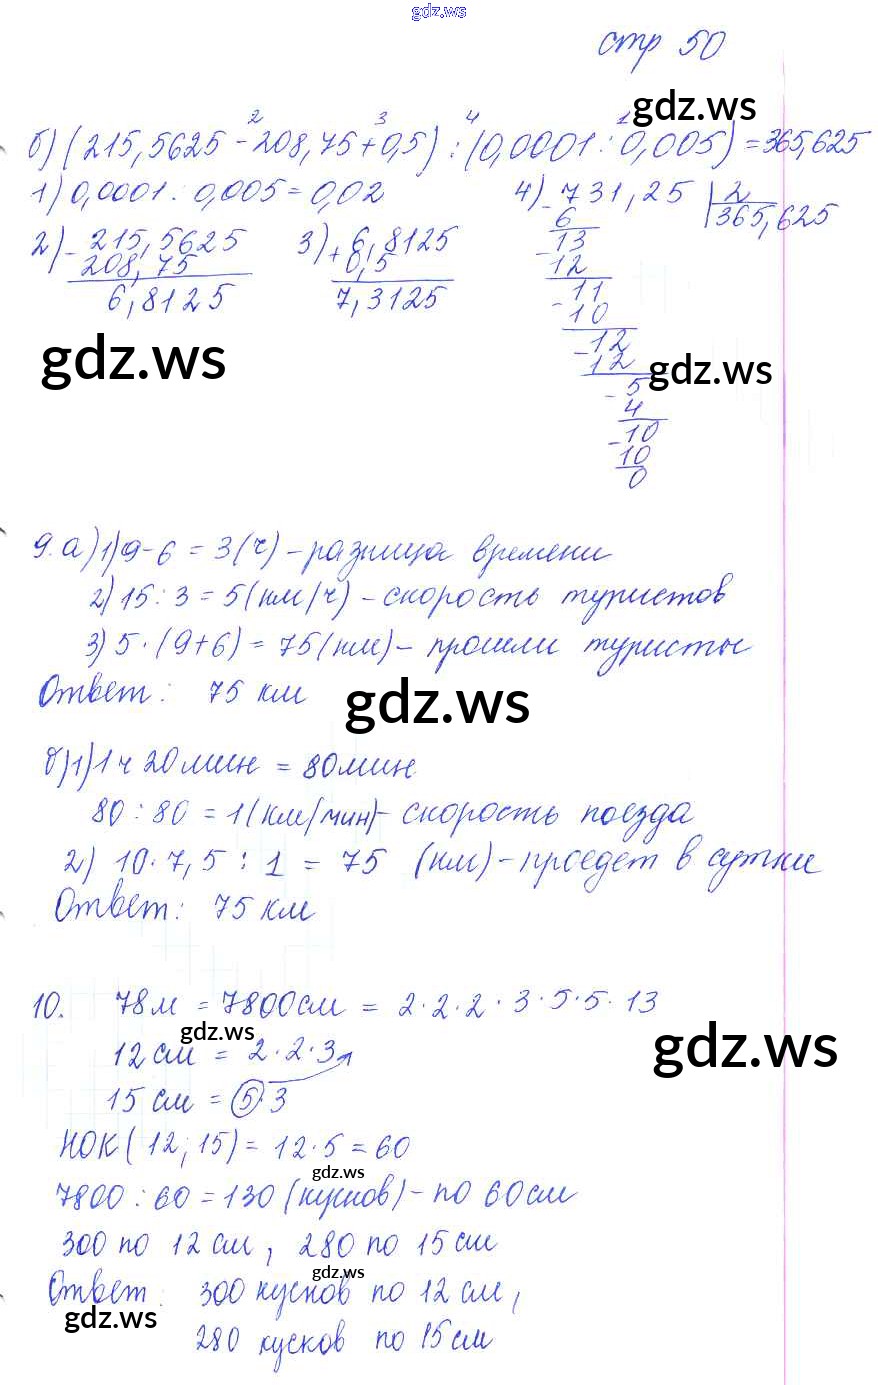 gdz.ws
стр 50
gdz.ws
2 3 4 1
б) (215,5625 - 208,75 + 0,5) : (0,0001 : 0,005) = 365,625
1) 0,0001 : 0,005 = 0,02
4) - 731,25 | 2
6 365,625
2) - 215,5625
208,75
6,8125
3) + 6,8125
0,5
7,3125
- 13
12
- 11
10
- 12
12
- 5
4
- 10
10
0
gdz.ws
gdz.ws
9. а) 1) 9 - 6 = 3 (ч) - разница времени
2) 15 : 3 = 5 (км/ч) - скорость туристов
3) 5 · (9 + 6) = 75 (км) - прошли туристы
Ответ: 75 км
gdz.ws
б) 1) 1 ч 20 мин = 80 мин
80 : 80 = 1 (км/мин) - скорость поезда
2) 10 · 7,5 : 1 = 75 (км) - проедет в сутки
Ответ: 75 км
10. 78 м = 7800 см = 2 · 2 · 2 · 3 · 5 · 5 · 13
gdz.ws
12 см = 2 · 2 · 3
gdz.ws
15 см = 5 · 3
НОК (12; 15) = 12 · 5 = 60
gdz.ws
7800 : 60 = 130 (кусков) - по 60 см
300 по 12 см, 280 по 15 см
gdz.ws
Ответ: 300 кусков по 12 см,
gdz.ws
280 кусков по 15 см